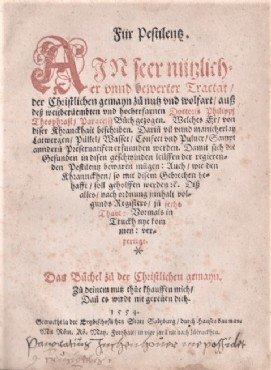 Für Pestilentz.
AIN seer nützlich-
er vnnd bewerter Tractat/
der Christlichen gemayn zů nutz vnd wolfart/ auß
deß weitberümbten vnd hocherfarnen Doctoris Philippi
Theophrasti Paracelsi Bůch gezogen. Welches Er/ von
diser Kranckhait beschriben. Darin vil vnnd mancherlay
Latwergen/ Pülfel/ Wasser/ Confect vnd Puluer/ Sampt
anndern Preseruatifen erfunden werden. Damit sich die
Gesunden in disen geschwinden leüffen der regieren-
den Pestilentz bewaren mügen: Auch/ wie den
Kranncken/ so mit disem Gebrechen be-
hafft/ soll geholffen werden ec. Diß
alles/ nach ordnung innhalt vol-
gunds Registers/ zů sechs
Thail: Vormals in
Truckh nye kom
men: ver-
fertigt.
Das Büchel zů der Christlichen gemayn.
Zů deinem nutz thůe khauffen mich/
Dañ es wirdt nit gerewen dich.
1554.
Getruckht in der Ertzbischofflichen Statt Saltzburg/ durch Hannsen Bauman.
Mit Röm. Kü. May. Freyhait/ in